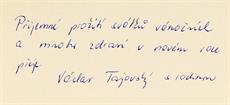 Příjemné prožití svátků vánočních
a mnoho zdraví v novém roce
přeje
Václav Tajovský s rodinou